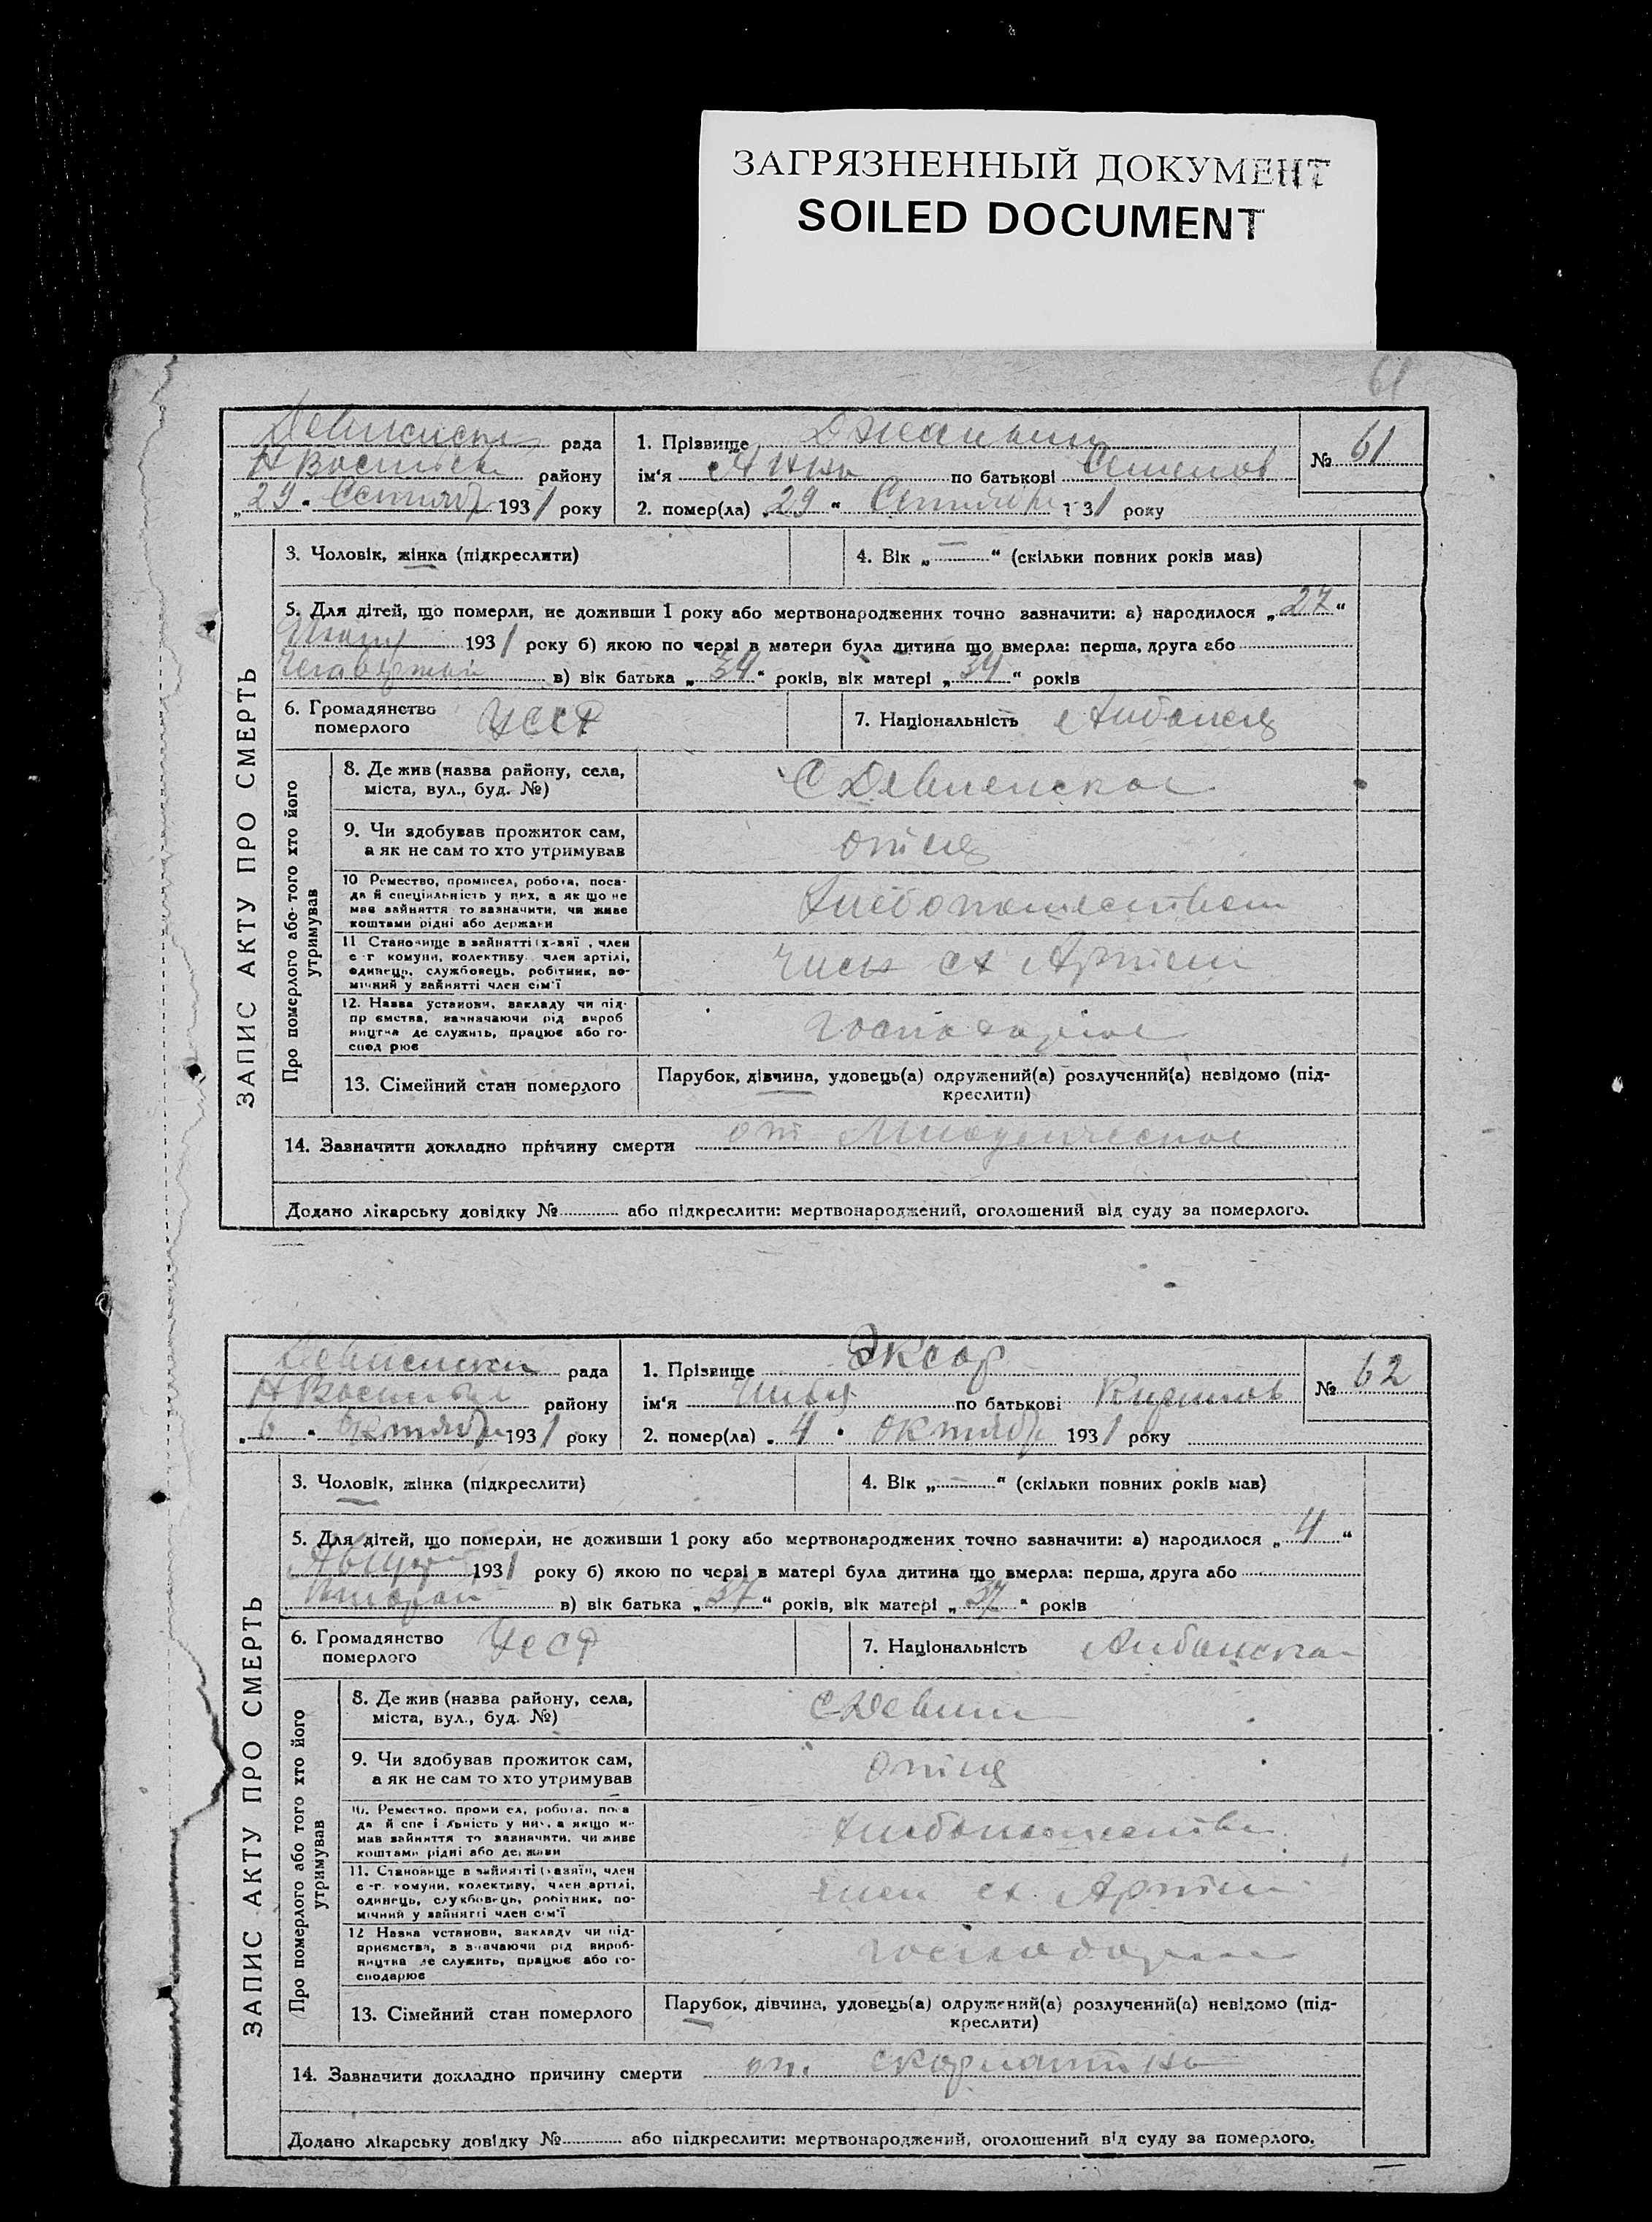 ЗАГРЯЗНЕННЫЙ ДОКУМЕНТ
SOILED DOCUMENT
61
рада
району
„29" 1931 року
1. Прізвище
ім'я по батькові Семенов
2. помер(ла) „29" Сентября 1931 року
№ 61
ЗАПИС АКТУ ПРО СМЕРТЬ
3. Чоловік, жінка (підкреслити)
4. Вік „—" (скільки повних років мав)
5. Для дітей, що померли, не доживши 1 року або мертвонароджених точно зазначити: а) народилося „27"
1931 року б) якою по черзі в матери була дитина що вмерла: перша, друга або
в) вік батька „34" років, вік матері „34" років
6. Громадянство
померлого УССР
7. Національність
Про померлого або того хто його
утримував
8. Де жив (назва району, села,
міста, вул., буд. №)
9. Чи здобував прожиток сам,
а як не сам то хто утримував
отец
10 Ремество, промисел, робота, поса-
да й спеціяльність у них, а як що не
має зайняття то зазначити, чи живе
коштами рідні або держави
11 Становище в зайнятті (х-зяї , член
с-г комуни, колективу, член артілі,
одинець, службовець, робітник, по-
мічний у зайнятті член сім'ї
член сх Артели
12. Назва установи, закладу чи під-
пр ємства, зазначаючи рід вироб
ництва де служить, працює або го-
спод рює
13. Сімейний стан померлого
Парубок, дівчина, удовець(а) одружений(а) розлучений(а) невідомо (під-
креслити)
14. Зазначити докладно причину смерти от
Додано лікарську довідку № або підкреслити: мертвонароджений, оголошений від суду за померлого.
рада
району
„6" Октября 1931 року
1. Прізвище Эксар
ім'я по батькові
2. помер(ла) „4" Октября 1931 року
№ 62
ЗАПИС АКТУ ПРО СМЕРТЬ
3. Чоловік, жінка (підкреслити)
4. Вік „—" (скільки повних років мав)
5. Для дітей, що померли, не доживши 1 року або мертвонароджених точно зазначити: а) народилося „4"
Август 1931 року б) якою по черзі в матері була дитина що вмерла: перша, друга або
второй в) вік батька „37" років, вік матері „37" років
6. Громадянство
померлого УССР
7. Національність Албанска
Про померлого або того хто його
утримував
8. Де жив (назва району, села,
міста, вул., буд. №)
9. Чи здобував прожиток сам,
а як не сам то хто утримував
отец
10. Ремество, проми ел, робота, поса
да й спе і льність у них, а якщо не
має зайняття то зазначити, чи живе
коштами рідні або держави
11. Становище в зайнятті (хазяїн, член
с-г. комуни, колективу, член артілі,
одинець, службовець, робітник, по-
мічний у зайнятті член сім'ї
член сх Артели
12 Назва установи, закладу чи під-
приємства, зазначаючи рід вироб-
ництва де служить, працює або го-
сподарює
13. Сімейний стан померлого
Парубок, дівчина, удовець(а) одружений(а) розлучений(а) невідомо (під-
креслити)
14. Зазначити докладно причину смерти от. скарлатины
Додано лікарську довідку № або підкреслити: мертвонароджений, оголошений від суду за померлого.